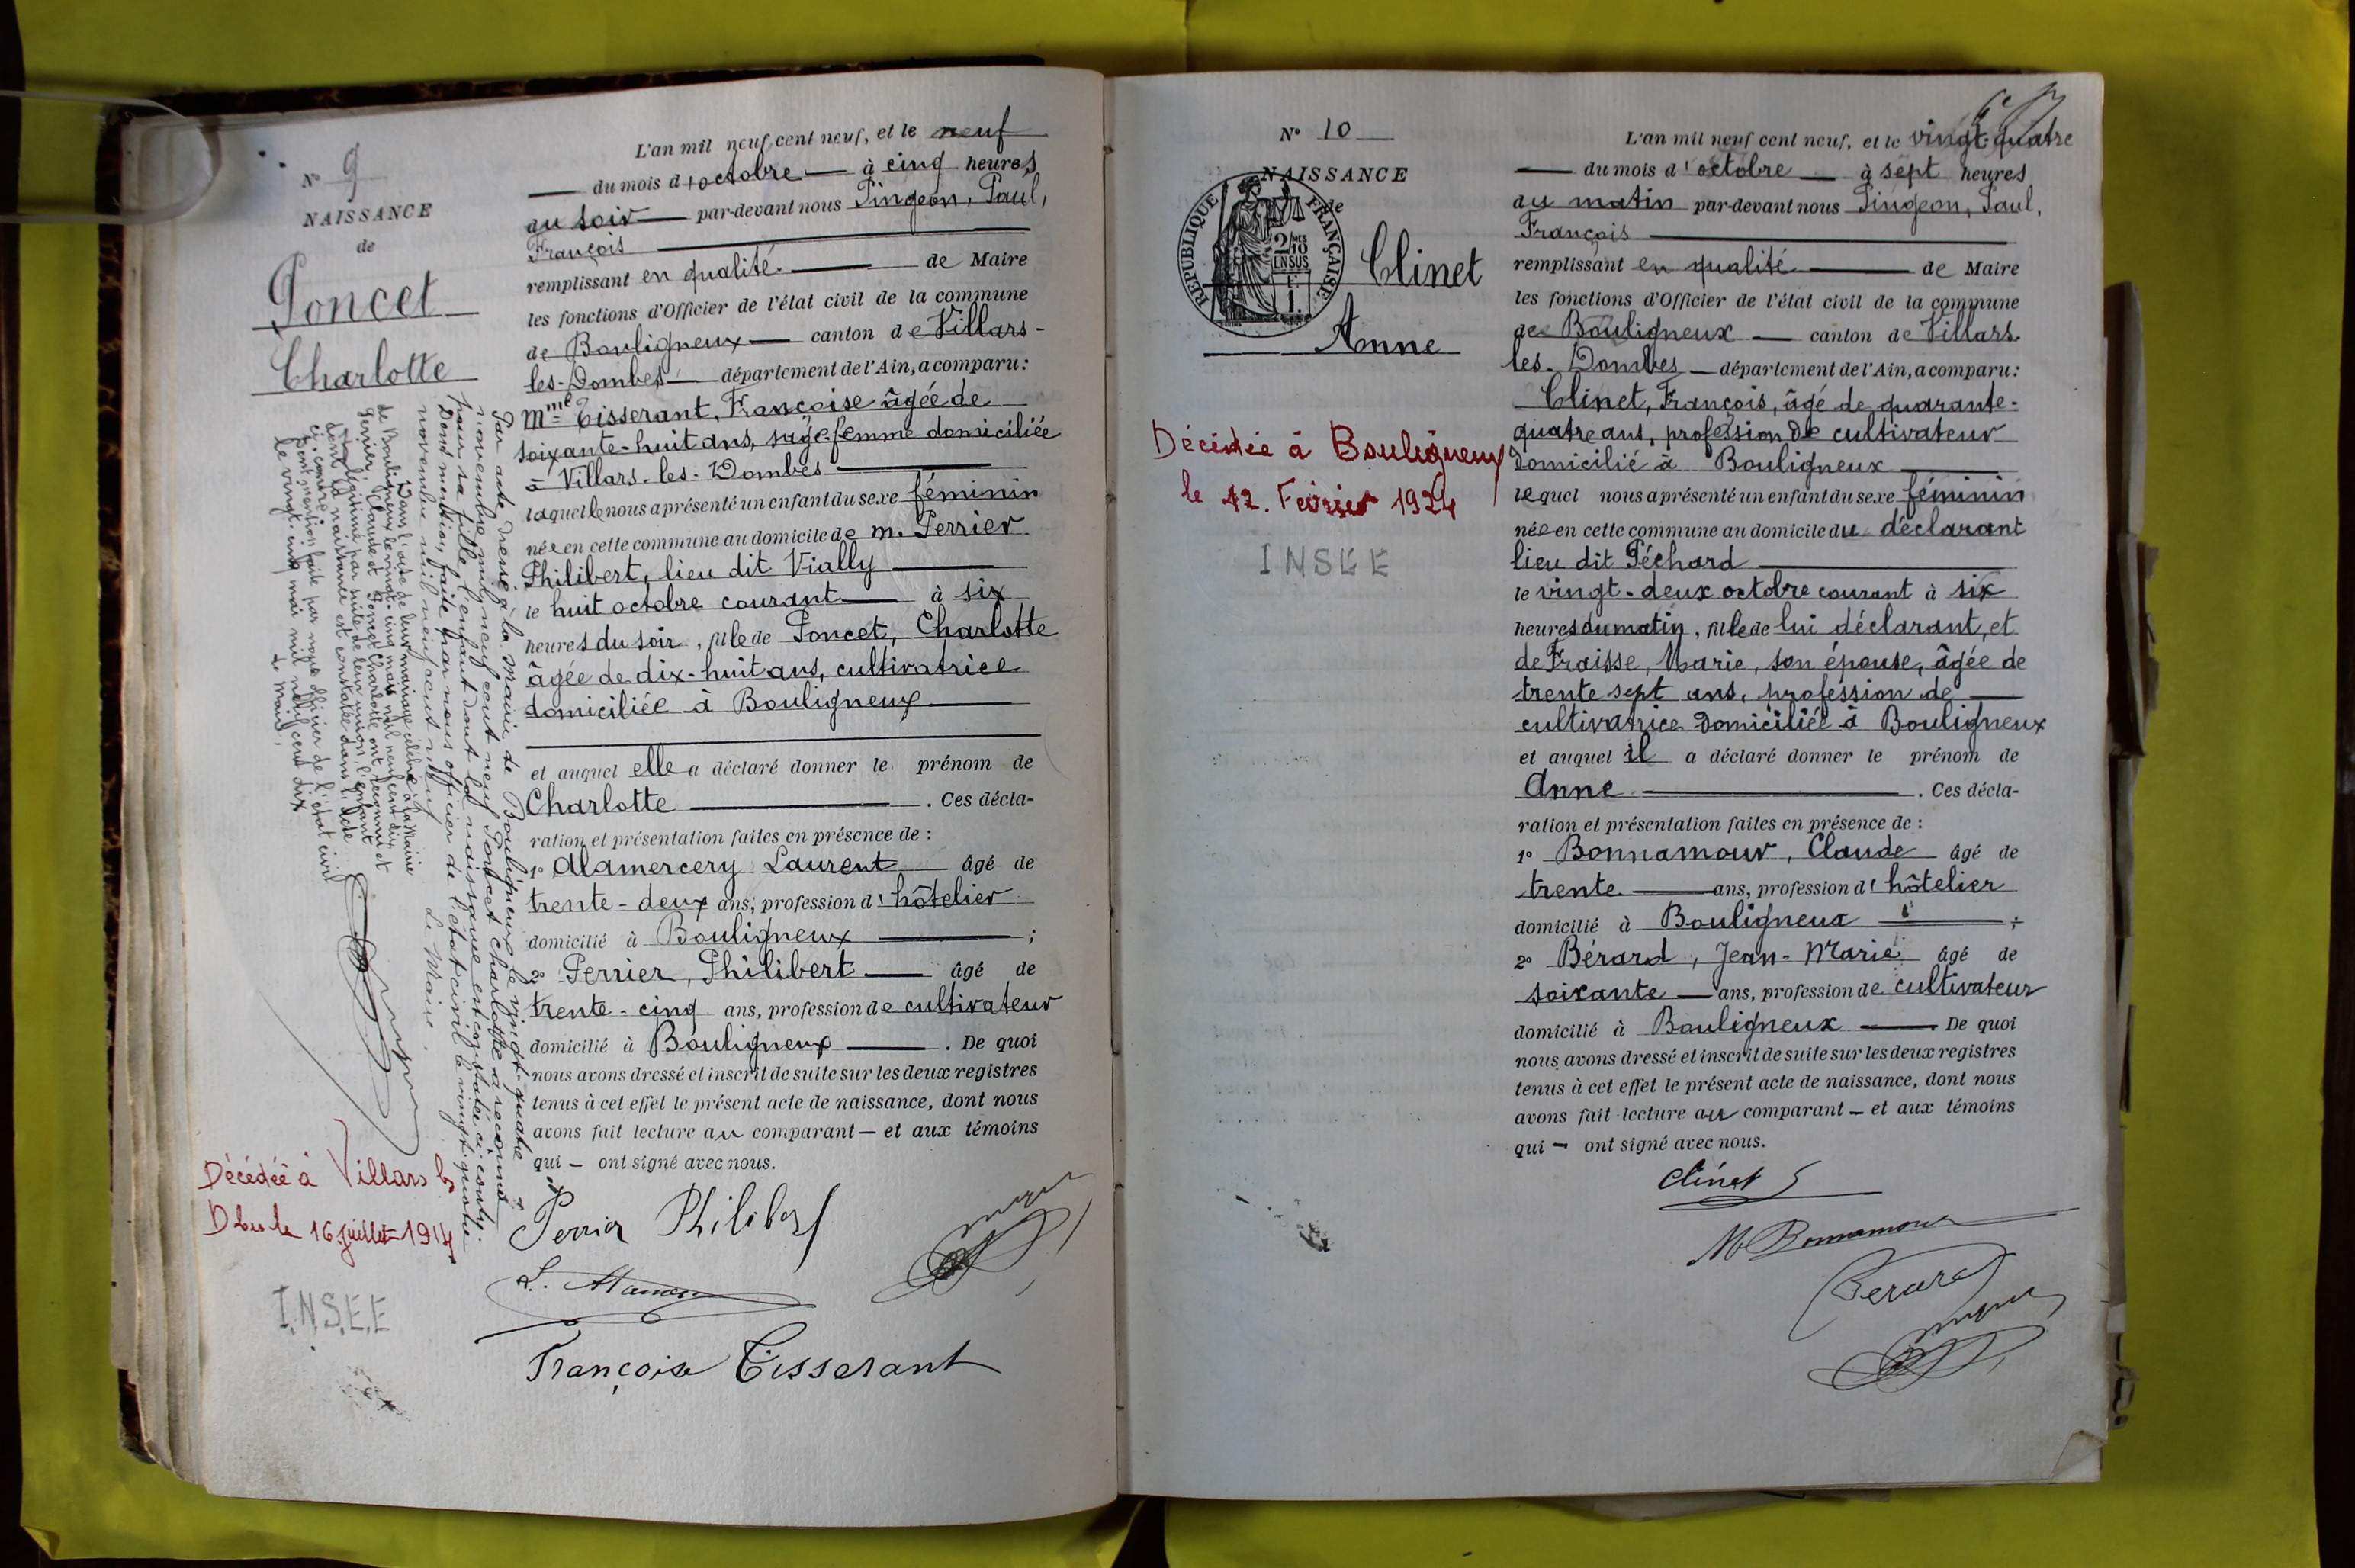 N° 9
NAISSANCE
de
Poncet
Charlotte
L'an mil neuf cent neuf, et le neuf
du mois d'octobre à cinq heures
du soir par-devant nous Pingeon, Paul,
François
remplissant en qualité de Maire
les fonctions d'Officier de l'état civil de la commune
de Bouligneux canton de Villars-
les-Dombes département de l'Ain, a comparu:
Mme Tisserant, Françoise âgée de
soixante-huit ans, sage-femme domiciliée
à Villars-les-Dombes
laquelle nous a présenté un enfant du sexe féminin
née en cette commune au domicile de M. Perrier
Philibert, lieu dit Vially
le huit octobre courant à six
heures du soir, fille de Poncet, Charlotte
âgée de dix-huit ans, cultivatrice
domiciliée à Bouligneux
et auquel elle a déclaré donner le prénom de
Charlotte . Ces décla-
ration et présentation faites en présence de :
1° Alamercery Laurent âgé de
trente-deux ans, profession d'hôtelier
domicilié à Bouligneux ;
2° Perrier, Philibert âgé de
trente-cinq ans, profession de cultivateur
domicilié à Bouligneux . De quoi
nous avons dressé et inscrit de suite sur les deux registres
tenus à cet effet le présent acte de naissance, dont nous
avons fait lecture au comparant — et aux témoins
qui — ont signé avec nous.
Perrier Philibert
Françoise Tisserant
Par acte dressé à la Mairie de Bouligneux le vingt-quatre
novembre mil neuf cent neuf Poncet Charlotte a reconnu
pour sa fille l'enfant dont la naissance est constatée ci-contre.
Dont mention faite par nous officier de l'état civil le vingt-quatre
novembre mil neuf cent neuf. Le Maire.
Dans l'acte de leur mariage célébré à la Mairie
de Bouligneux le vingt-cinq mai mil neuf cent dix
Perrier, Claude et Poncet Charlotte ont reconnu et
légitimé par suite de leur union, l'enfant
dont la naissance est constatée dans l'acte
ci-contre.
Dont mention faite par nous officier de l'état civil
le vingt-cinq mai mil neuf cent dix
Le Maire,
Décédée à Villars les
Dbes le 16 juillet 1914
I.N.S.E.E
N° 10
NAISSANCE
de
RÉPUBLIQUE FRANÇAISE
2/10 EN SUS
Clinet
Anne
Décédée à Bouligneux
le 12. Février 1924
INSEE
L'an mil neuf cent neuf, et le vingt-quatre
du mois d'octobre à sept heures
du matin par-devant nous Pingeon, Paul,
François
remplissant en qualité de Maire
les fonctions d'Officier de l'état civil de la commune
de Bouligneux canton de Villars-
les-Dombes département de l'Ain, a comparu:
Clinet, François, âgé de quarante-
quatre ans, profession de cultivateur
domicilié à Bouligneux
lequel nous a présenté un enfant du sexe féminin
née en cette commune au domicile du déclarant
lieu dit Péchard
le vingt-deux octobre courant à six
heures du matin, fille de lui déclarant, et
de Fraisse, Marie, son épouse, âgée de
trente sept ans, profession de
cultivatrice domiciliée à Bouligneux
et auquel il a déclaré donner le prénom de
Anne . Ces décla-
ration et présentation faites en présence de :
1° Bonnamour, Claude âgé de
trente ans, profession d'hôtelier
domicilié à Bouligneux ;
2° Bérard, Jean-Marie âgé de
soixante ans, profession de cultivateur
domicilié à Bouligneux De quoi
nous avons dressé et inscrit de suite sur les deux registres
tenus à cet effet le présent acte de naissance, dont nous
avons fait lecture au comparant — et aux témoins
qui — ont signé avec nous.
Clinet
Bonnamour
Berard